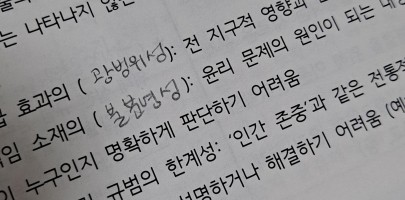 는 나타나지 않은
효과의 ( 광범위성): 전 지구적 영향과
책임 소재의 ( 불분명성): 윤리 문제의 원인이 되는
누구인지 명확하게 판단하기 어려움
규범의 한계성: '인간 존중'과 같은 전통적
설명하거나 해결하기 어려움 (예